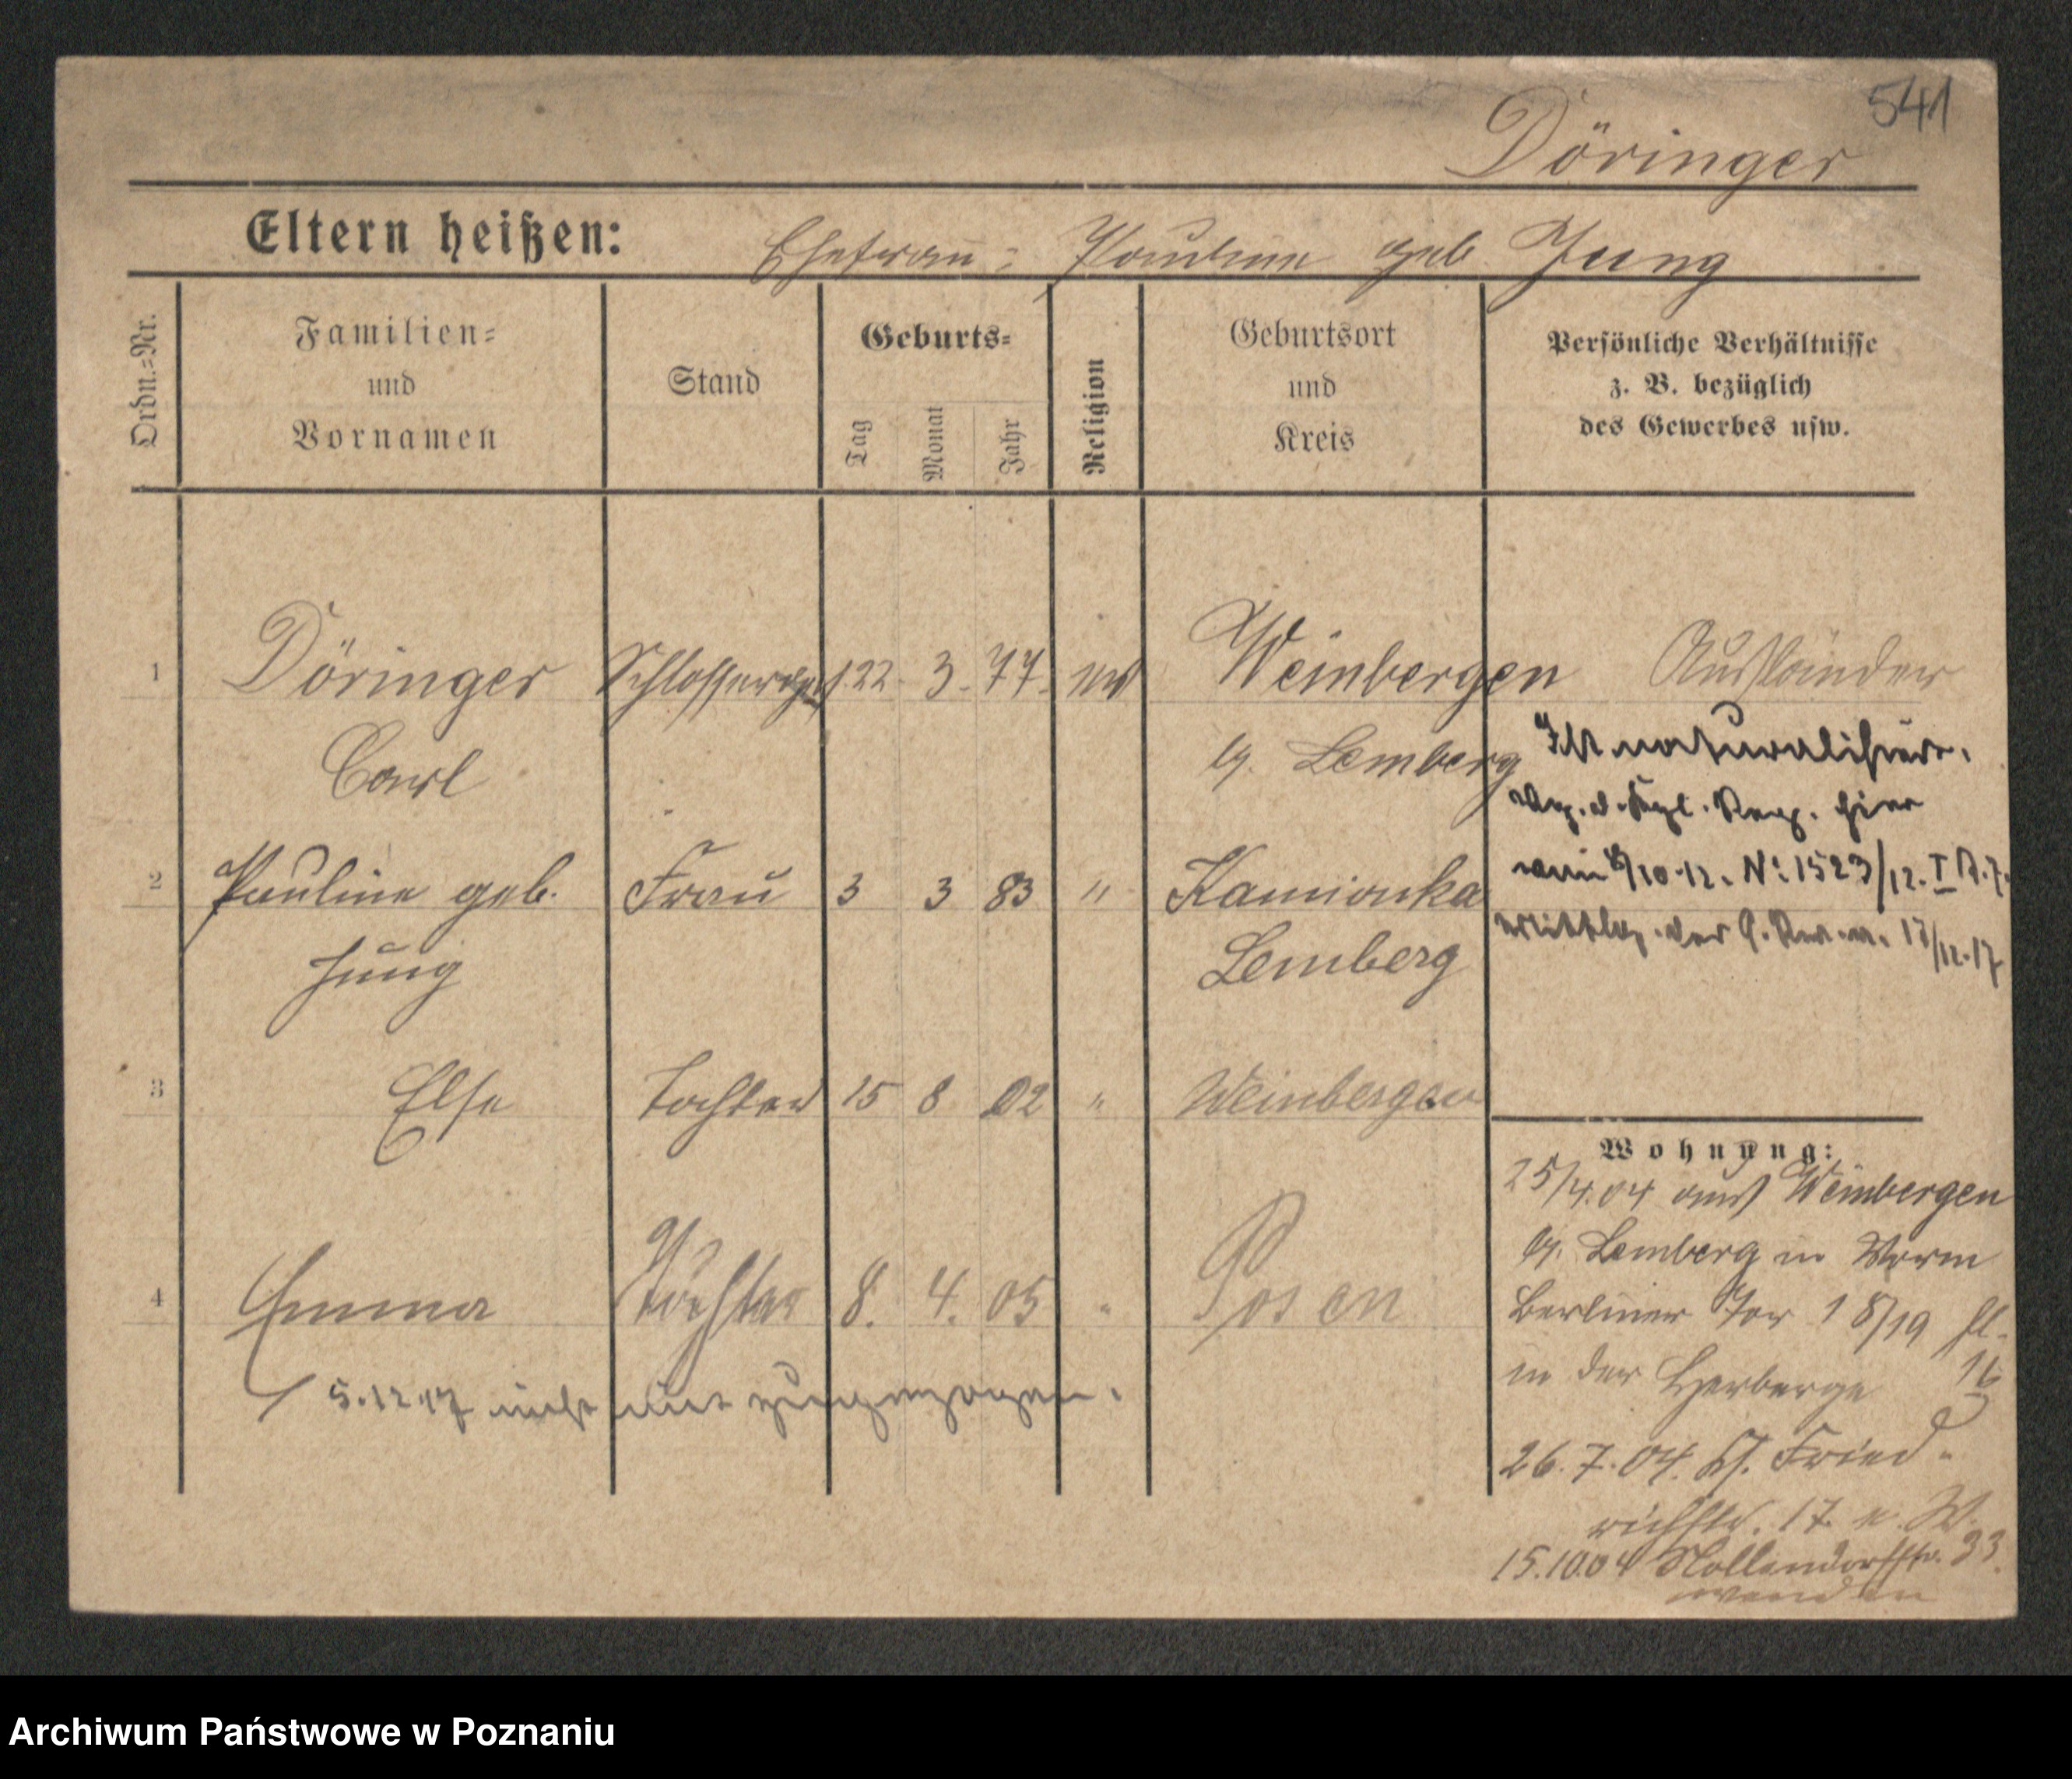 541
Döringer
Eltern heißen: Ehefrau: Pauline geb Jung
Ordn.=Nr.
Familien=
und
Vornamen
Stand
Geburts=
Tag
Monat
Jahr
Religion
Geburtsort
und
Kreis
Persönliche Verhältnisse
z. B. bezüglich
des Gewerbes usw.
1 Döringer Schlosserges. 22. 3. 77. Weinbergen Ausländer
Carl Lemberg
Ist naturalisiert.
d. Kgl. Reg. hier
/10.12. No 1523/12. I
2 Pauline geb. Frau 3 3 83 " Kamionka
Jung Lemberg
der 13/12.17
3 Else Tochter 15 8 02 " Weinbergen
4 Emma Tochter 8. 4. 05 " Posen
5.12.17 nicht mit zugezogen.
Wohnung:
25/4.04 aus Weinbergen
Lemberg in
Berliner Tor 18/19
in der Herberge
26.7.04. Fried=
richstr. 17
15.10.04 Nollendorfstr. 33
wenden
Archiwum Państwowe w Poznaniu